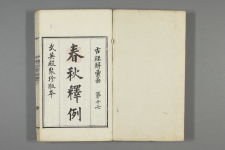 古經解彙函 第十七
春秋釋例
武英殿聚珍版本